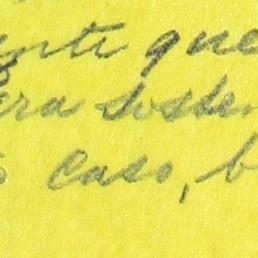 ente que
era sosten
caso, b